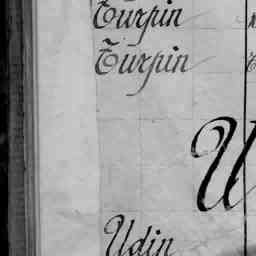 Turpin
Turpin
U
Udin